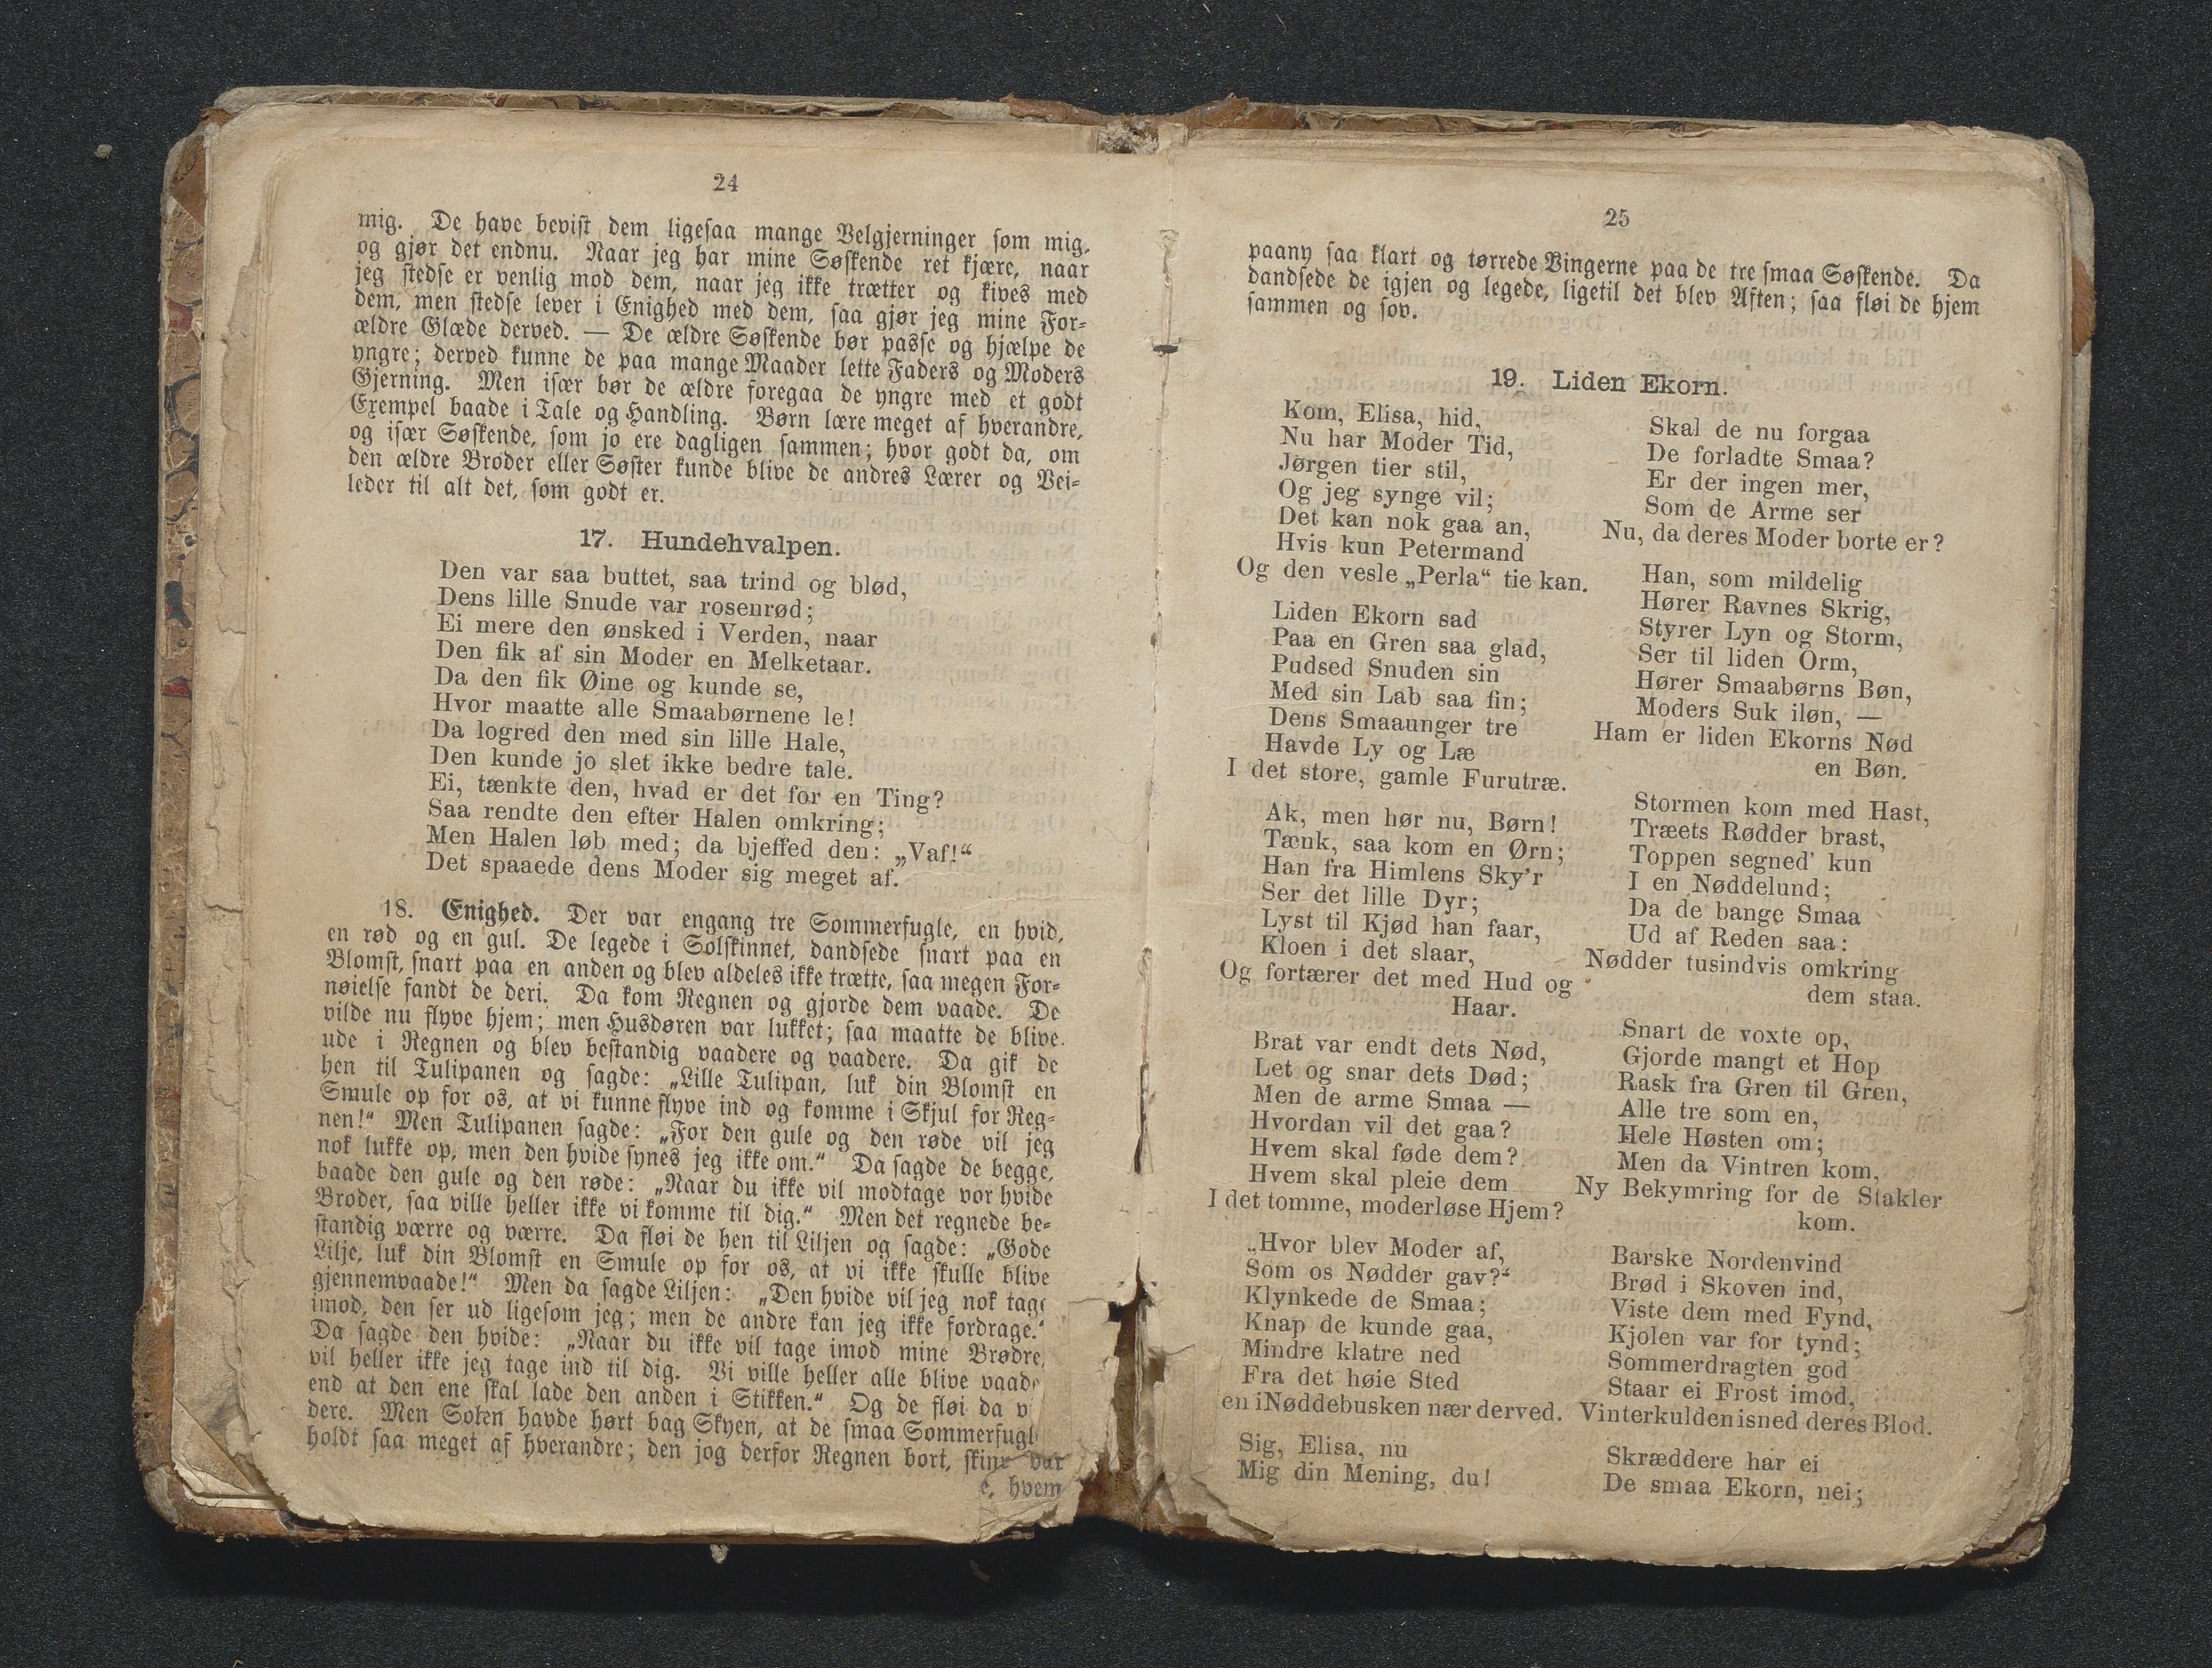 24
mig. De have bevist dem ligesaa mange Velgjerninger som mig,
og gjør det endnu. Naar jeg har mine Søskende ret kjære, naar
jeg stedse er venlig mod dem, naar jeg ikke trætter og kives med
dem, men stedse lever i Enighed med dem, saa gjør jeg mine For-
ældre Glæde derved. — De ældre Søskende bør passe og hjælpe de
yngre; derved kunne de paa mange Maader lette Faders og Moders
Gjerning. Men især bør de ældre foregaa de yngre med et godt
Exempel baade i Tale og Handling. Børn lære meget af hverandre,
og især Søskende, som jo ere dagligen sammen; hvor godt da, om
den ældre Broder eller Søster kunde blive de andres Lærer og Vei-
leder til alt det, som godt er.
17. Hundehvalpen.
Den var saa buttet, saa trind og blød,
Dens lille Snude var rosenrød;
Ei mere den ønsked i Verden, naar
Den fik af sin Moder en Melketaar.
Da den fik Øine og kunde se,
Hvor maatte alle Smaabørnene le!
Da logred den med sin lille Hale,
Den kunde jo slet ikke bedre tale.
Ei, tænkte den, hvad er det for en Ting?
Saa rendte den efter Halen omkring;
Men Halen løb med; da bjeffed den: „Vaf!“
Det spaaede dens Moder sig meget af.
18. Enighed. Der var engang tre Sommerfugle, en hvid,
en rød og en gul. De legede i Solskinnet, dandsede snart paa en
Blomst, snart paa en anden og blev aldeles ikke trætte, saa megen For-
nøielse fandt de deri. Da kom Regnen og gjorde dem vaade. De
vilde nu flyve hjem; men Husdøren var lukket; saa maatte de blive
ude i Regnen og blev bestandig vaadere og vaadere. Da gik de
hen til Tulipanen og sagde: „Lille Tulipan, luk din Blomst en
Smule op for os, at vi kunne flyve ind og komme i Skjul for Reg-
nen!“ Men Tulipanen sagde: „For den gule og den røde vil jeg
nok lukke op, men den hvide synes jeg ikke om.“ Da sagde de begge,
baade den gule og den røde: „Naar du ikke vil modtage vor hvide
Broder, saa ville heller ikke vi komme til dig.“ Men det regnede be-
standig værre og værre. Da fløi de hen til Liljen og sagde: „Gode
Lilje, luk din Blomst en Smule op for os, at vi ikke skulle blive
gjennemvaade!“ Men da sagde Liljen: „Den hvide vil jeg nok tage
imod, den ser ud ligesom jeg; men de andre kan jeg ikke fordrage.“
Da sagde den hvide: „Naar du ikke vil tage imod mine Brødre,
vil heller ikke jeg tage ind til dig. Vi ville heller alle blive vaade
end at den ene skal lade den anden i Stikken.“ Og de fløi da v
dere. Men Solen havde hørt bag Skyen, at de smaa Sommerfugl
holdt saa meget af hverandre; den jog derfor Regnen bort, skin
var
hvem
25
paany saa klart og tørrede Vingerne paa de tre smaa Søskende. Da
dandsede de igjen og legede, ligetil det blev Aften; saa fløi de hjem
sammen og sov.
19. Liden Ekorn.
Kom, Elisa, hid,
Nu har Moder Tid,
Jørgen tier stil,
Og jeg synge vil;
Det kan nok gaa an,
Hvis kun Petermand
Og den vesle „Perla“ tie kan.
Liden Ekorn sad
Paa en Gren saa glad,
Pudsed Snuden sin
Med sin Lab saa fin;
Dens Smaaunger tre
Havde Ly og Læ
I det store, gamle Furutræ.
Ak, men hør nu, Børn!
Tænk, saa kom en Ørn;
Han fra Himlens Sky'r
Ser det lille Dyr;
Lyst til Kjød han faar,
Kloen i det slaar,
Og fortærer det med Hud og
Haar.
Brat var endt dets Nød,
Let og snar dets Død;
Men de arme Smaa —
Hvordan vil det gaa?
Hvem skal føde dem?
Hvem skal pleie dem
I det tomme, moderløse Hjem?
„Hvor blev Moder af,
Som os Nødder gav?“
Klynkede de Smaa;
Knap de kunde gaa,
Mindre klatre ned
Fra det høie Sted
en i Nøddebusken nær derved.
Sig, Elisa, nu
Mig din Mening, du!
Skal de nu forgaa
De forladte Smaa?
Er der ingen mer,
Som de Arme ser
Nu, da deres Moder borte er?
Han, som mildelig
Hører Ravnes Skrig,
Styrer Lyn og Storm,
Ser til liden Orm,
Hører Smaabørns Bøn,
Moders Suk iløn, —
Ham er liden Ekorns Nød
en Bøn.
Stormen kom med Hast,
Træets Rødder brast,
Toppen segned' kun
I en Nøddelund;
Da de bange Smaa
Ud af Reden saa:
Nødder tusindvis omkring
dem staa.
Snart de voxte op,
Gjorde mangt et Hop
Rask fra Gren til Gren,
Alle tre som en,
Hele Høsten om;
Men da Vintren kom,
Ny Bekymring for de Stakler
kom.
Barske Nordenvind
Brød i Skoven ind,
Viste dem med Fynd,
Kjolen var for tynd;
Sommerdragten god
Staar ei Frost imod,
Vinterkulden isned deres Blod.
Skræddere har ei
De smaa Ekorn, nei;